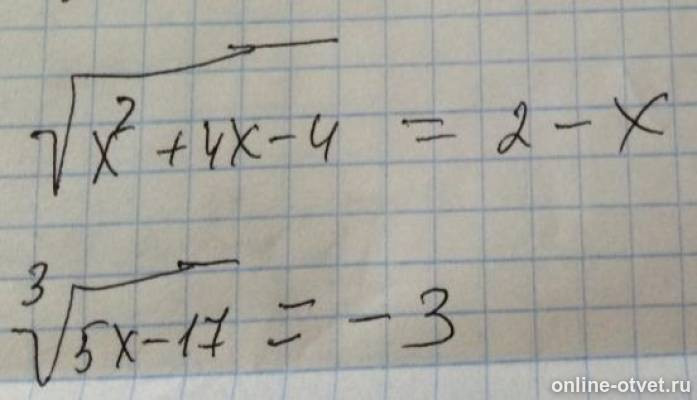 √(x² + 4x - 4) = 2 - x
³√(5x - 17) = -3
online-otvet.ru